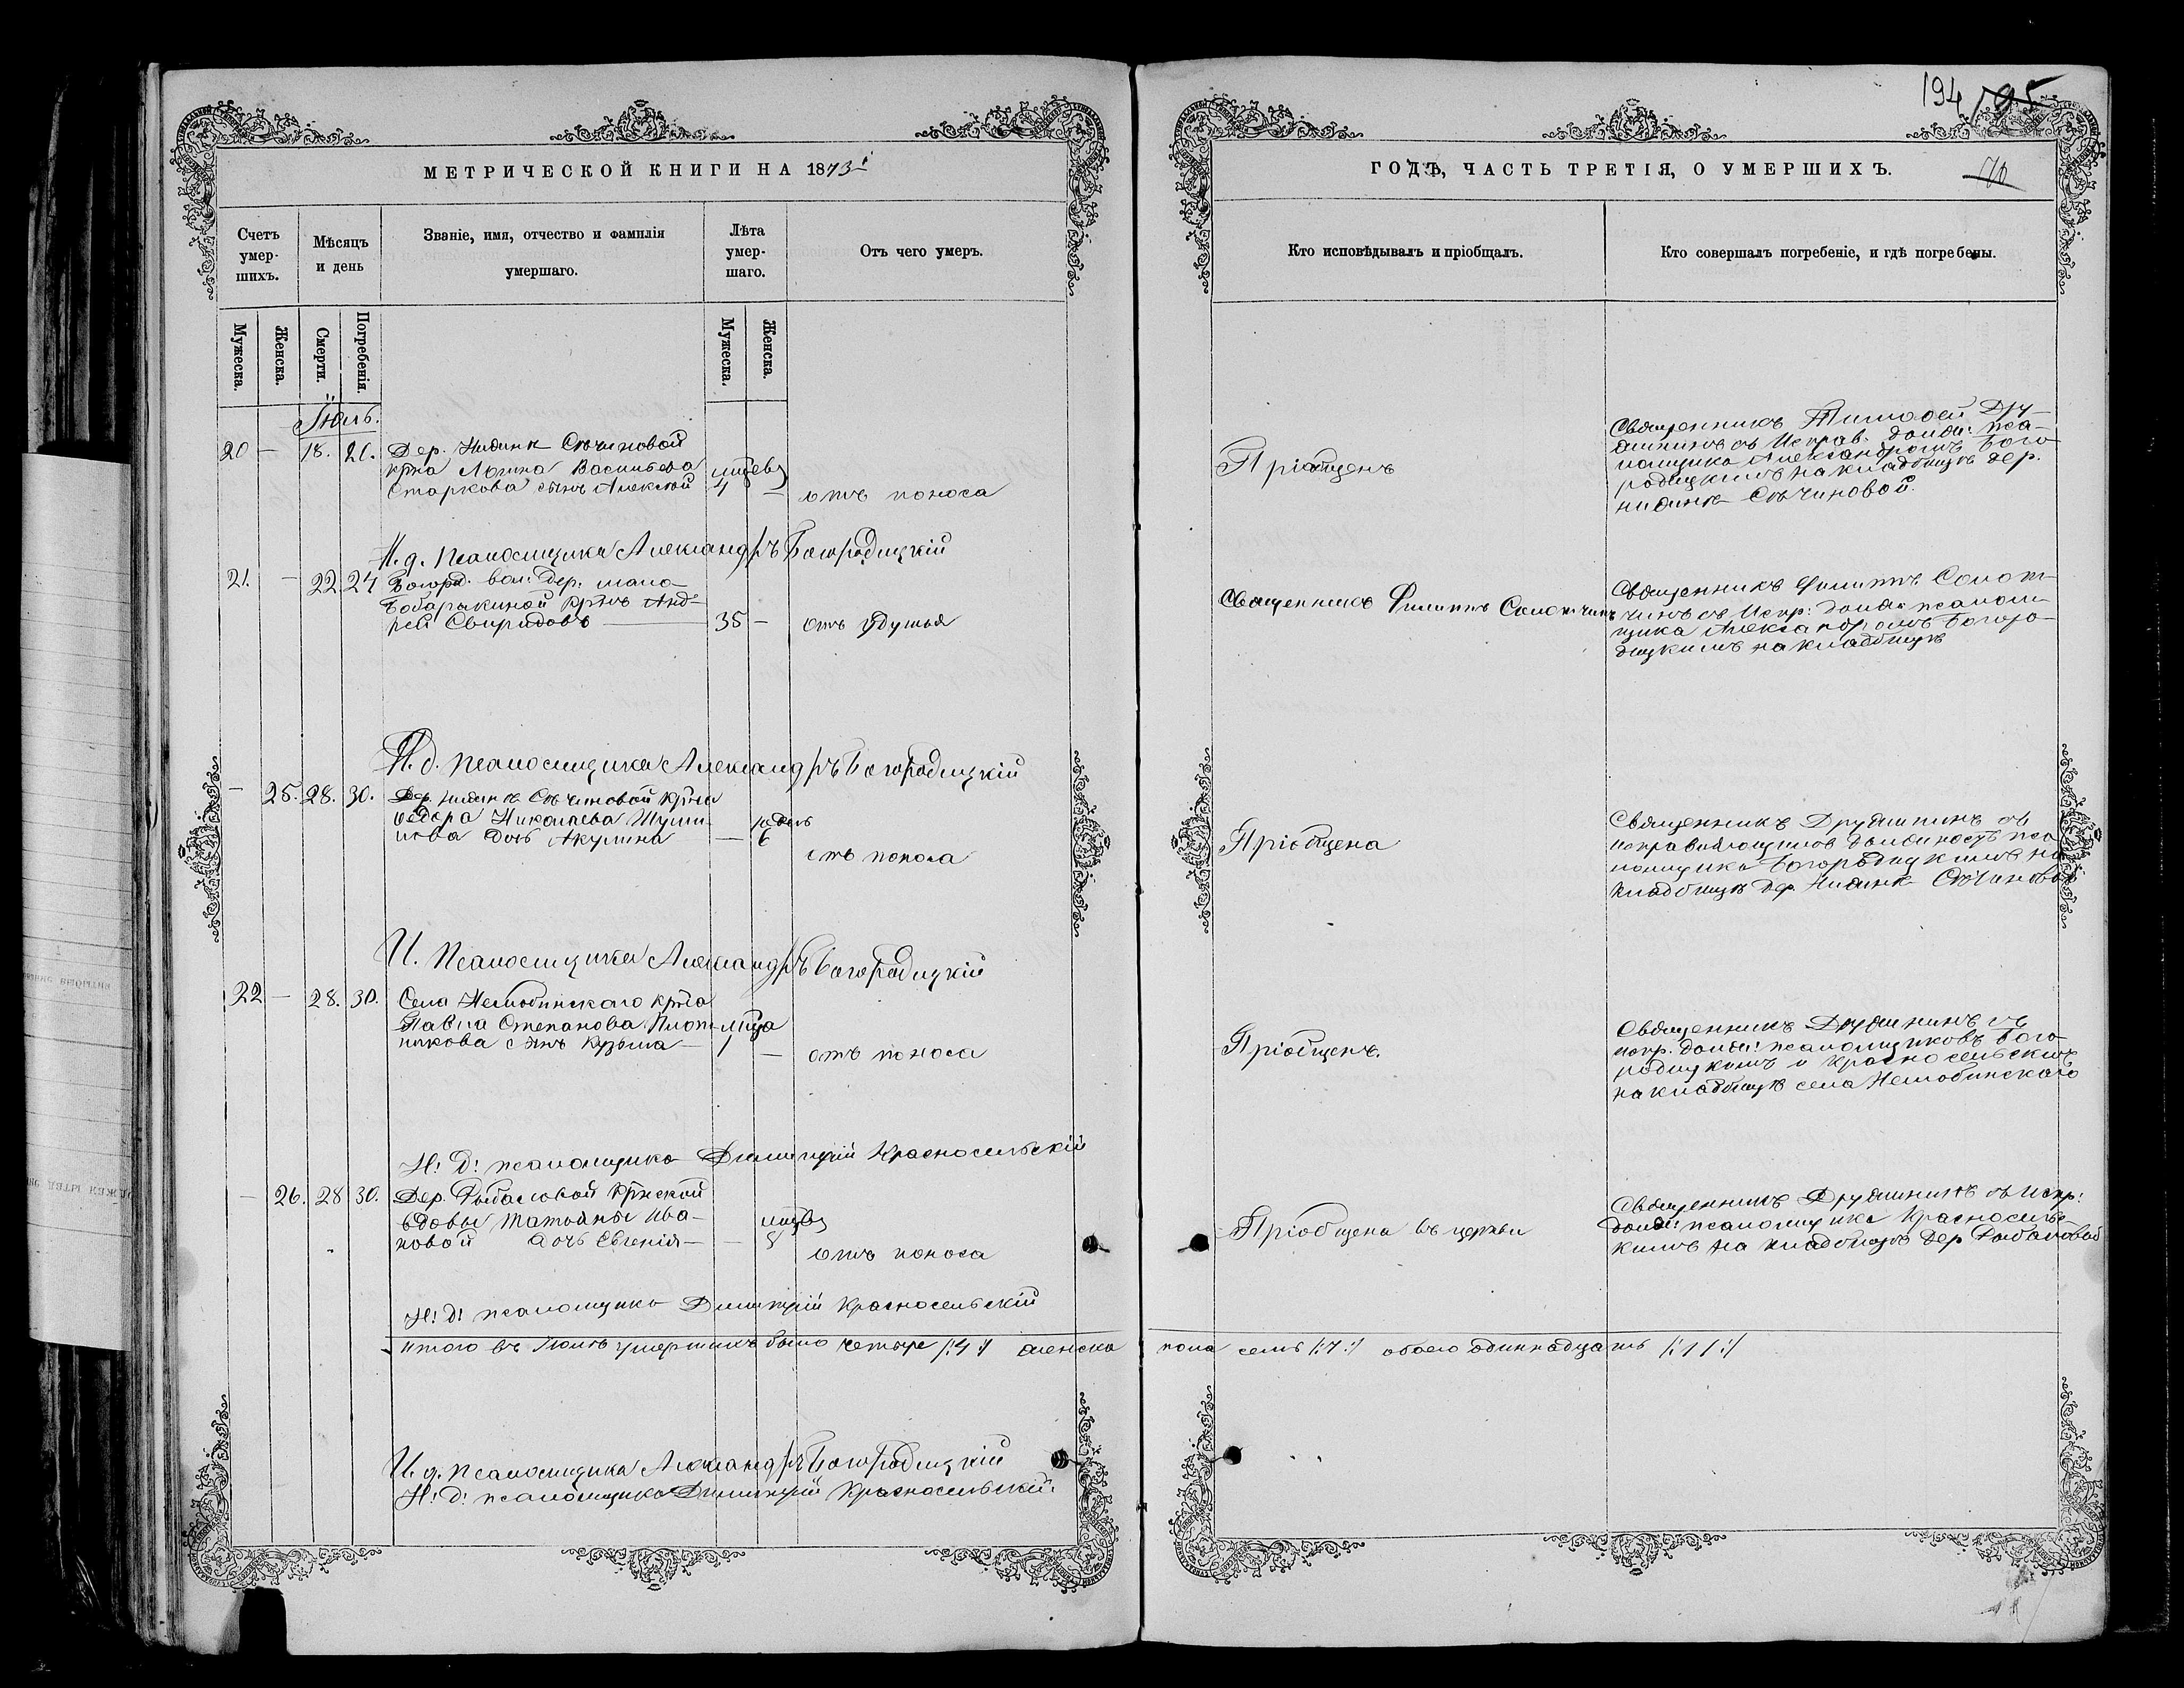 194 195
МЕТРИЧЕСКОЙ КНИГИ НА 1873й
ГОДЪ, ЧАСТЬ ТРЕТІЯ, О УМЕРШИХЪ.
Счетъ умер-шихъ.
Мѣсяцъ и день
Званіе, имя, отчество и фамилія умершаго.
Лѣта умер-шаго.
Отъ чего умеръ.
Кто исповѣдывалъ и пріобщалъ.
Кто совершалъ погребеніе, и гдѣ погребены.
Мужеска.
Женска.
Смерти.
Погребенія.
Мужеска.
Женска.
Іюль.
20 — 18. 20.
Дер. Нижне Сѣчиновой
крна Логина Васильева
Старкова сынъ Алексѣй
мцевъ
4 —
отъ поноса
Пріобщенъ
Священникъ Тимофей Дру-
жининъ съ Исправ. должн: пса-
ломщика Александромъ Бого-
родицкимъ на кладбищѣ дер.
нижне Сѣчиновой.
И. д. Псаломщика Александръ Богородицкій
21. — 22. 24
Богород. вол. дер. мало-
Бобарыкиной крнъ Анд-
рей Свиридовъ
35 —
отъ удушья
Священникъ Филиппъ Солотчинъ
Священникъ Филиппъ Солот-
чинъ съ Испр: должн псалом-
щика Александромъ Богоро-
дицкимъ на кладбищѣ
И. д. Псаломщика Александръ Богородицкій
— 25. 28. 30.
Дер. нижне Сѣчиновой крна
Федора Николаева Шуми-
лова дочь Акулина
— 6
отъ поноса
Пріобщена
Священникъ Дружининъ съ
исправляющимъ должность пса
ломщика Богородицкимъ на
кладбищѣ дер. Нижне Сѣчиновой
И. Псаломщика Александръ Богородицкій
22 — 28. 30.
Села Нелюбинскаго крна
Павла Степанова Плот-
никова сынъ Кузьма
мца
1 —
отъ поноса
Пріобщенъ.
Священникъ Дружининъ съ
испр. должн: псаломщиковъ Бого-
родицкимъ и Красносельскимъ
на кладбищѣ села Нелюбинскаго
И: Д: псаломщика Димитрій Красносельскій
— 26. 28 30.
Дер. Рыбаловой крнской
вдовы Татьяны Ива-
новой дочь Евгенія
мцевъ
—
отъ поноса
Пріобщена въ церкви
Священникъ Дружининъ съ испр:
должн: псаломщика Красносель-
кимъ на кладбищѣ дер Рыбаловой
И: Д: псаломщика Димитрій Красносельскій
итого въ Іюлѣ умершихъ было четыре /:4:/ женска пола семь /:7:/ обоего одиннадцать /:11:/
И. д. псаломщика Александръ Богородицкій
И: Д: псаломщика Димитрій Красносельскій.